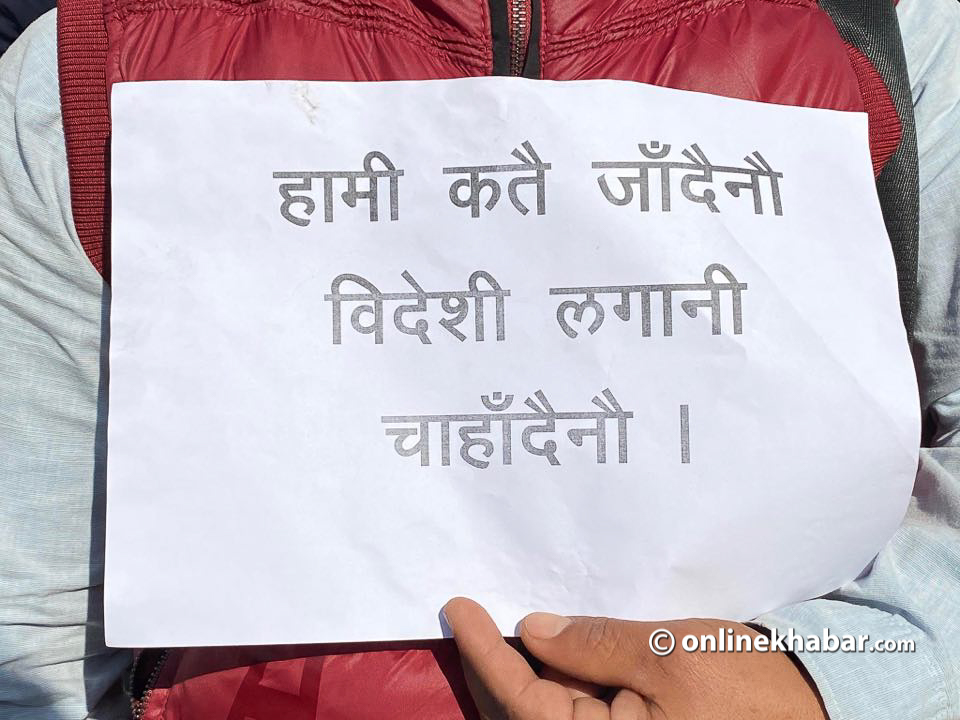 हामी कतै जाँदैनौ
विदेशी लगानी
चाहाँदैनौ ।
© onlinekhabar.com